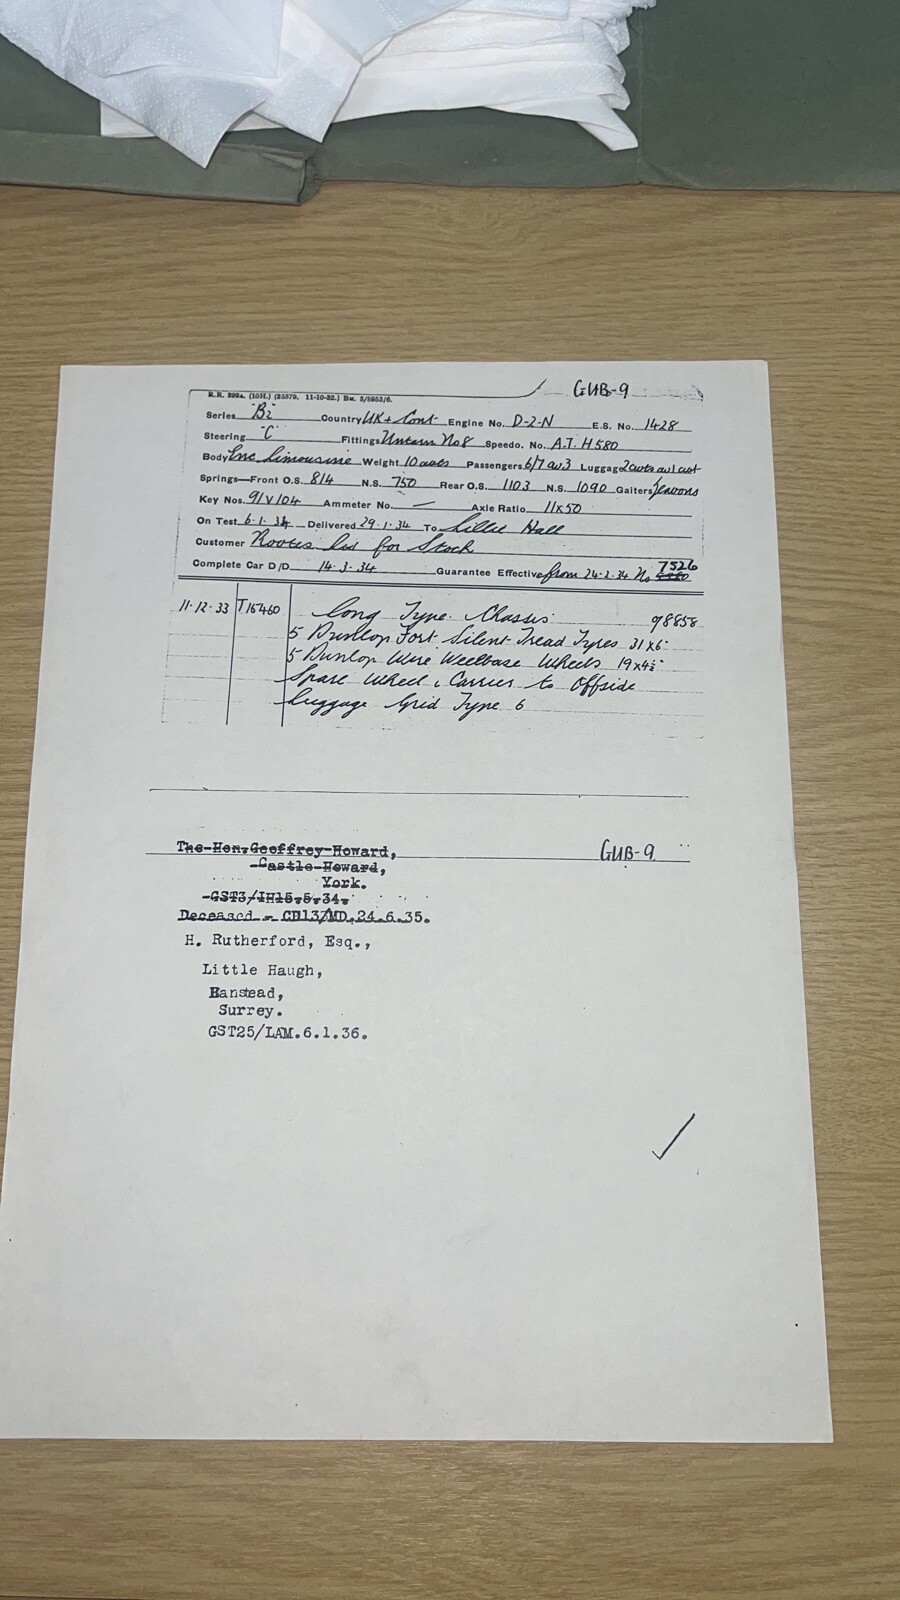 R.R. 399A. (10H.) (25579. 11-10-32.) Bm. 3/8953/6.
GUB-9
Series B2 Country UK + Cont Engine No. D-2-N E.S. No. 1428
Steering "C" Fittings No 8 Speedo. No. A.T. H580
Body Enc Limousine Weight 10 cwts Passengers 6/7 av 3 Luggage 2 cwts av 1 cwt
Springs—Front O.S. 814 N.S. 750 Rear O.S. 1103 N.S. 1090 Gaiters Jenvons
Key Nos. 91V104 Ammeter No. — Axle Ratio 11x50
On Test 6.1.34 Delivered 29.1.34 To Lillie Hall
Customer Rootes Ltd for Stock
Complete Car D/D 14.3.34 Guarantee Effective from 24.2.34 No 7526
11.12.33 T15460 Long Type Chassis 98858
5 Dunlop Fort Silent Tread Tyres 31x6"
5 Dunlop Wire Wellbase Wheels 19x4½"
Spare Wheel & Carrier to Offside
Luggage Grid Type 6
The Hon. Geoffrey Howard,
GUB-9
Castle Howard,
York.
GST3/IH15.5.34.
Deceased - CH13/MD.24.6.35.
H. Rutherford, Esq.,
Little Haugh,
Banstead,
Surrey.
GST25/LAM.6.1.36.